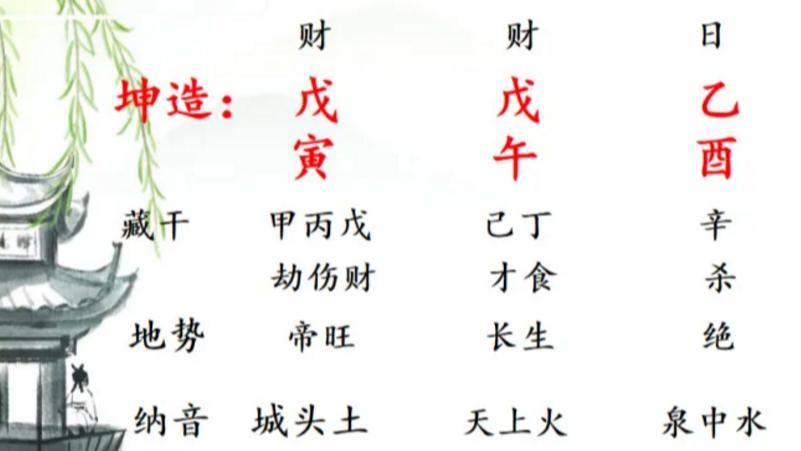 财 财 日
坤造： 戊 戊 乙
寅 午 酉
藏干 甲丙戊 己丁 辛
劫伤财 才食 杀
地势 帝旺 长生 绝
纳音 城头土 天上火 泉中水